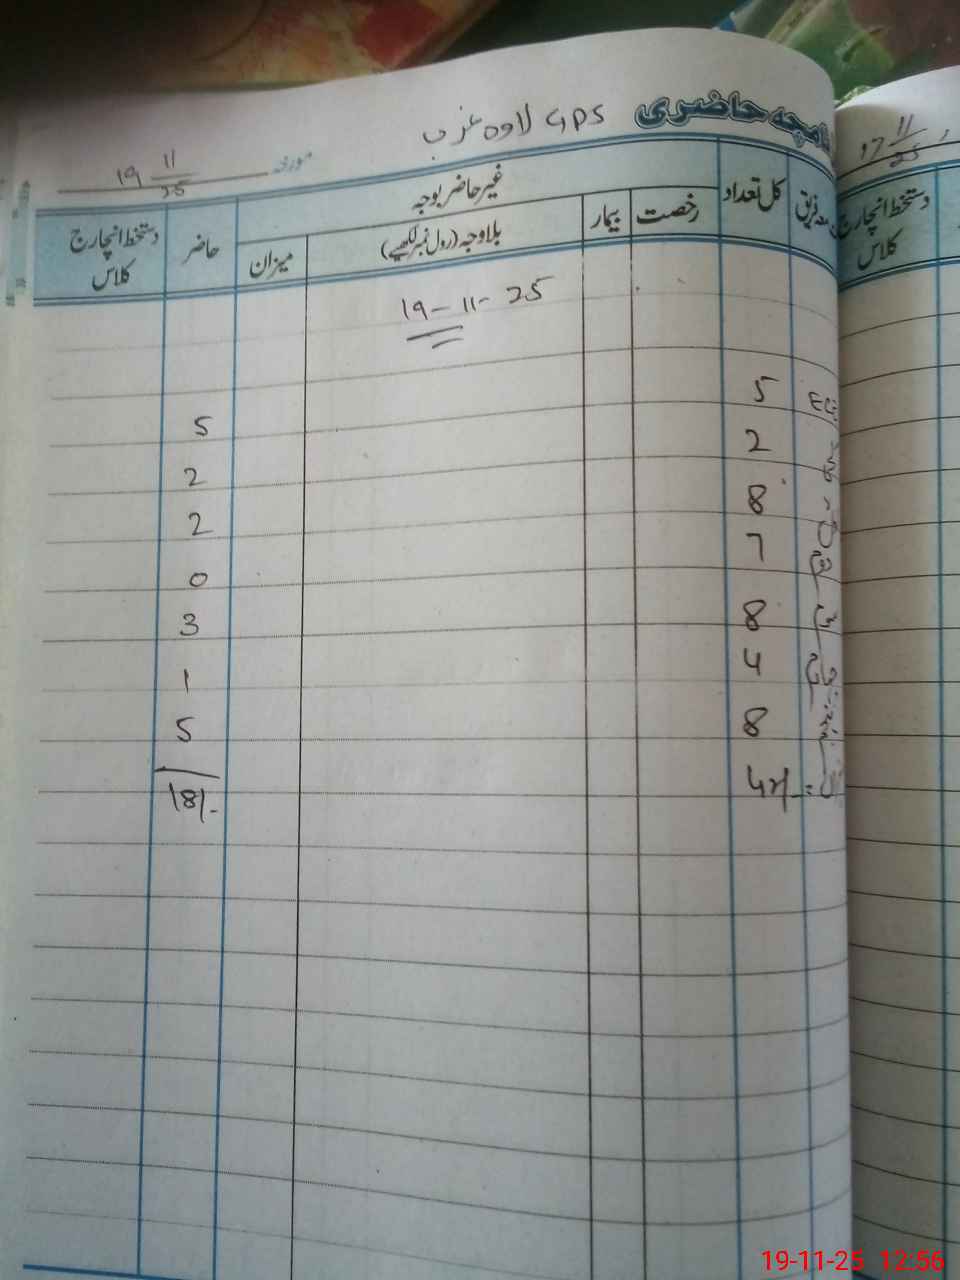 حاضری
GPS لاوہ غرب
مورخہ 19 11/25
17 11/25
کل تعداد رخصت بیمار غیر حاضر بوجہ حاضر دستخط انچارج کلاس
بلاوجہ (رول نمبر لکھیے) میزان
دستخط انچارج کلاس
19-11-25
5 5
2 2
8 2
7 0
8 3
4 1
8 5
42/- 18/-
19-11-25 12:56